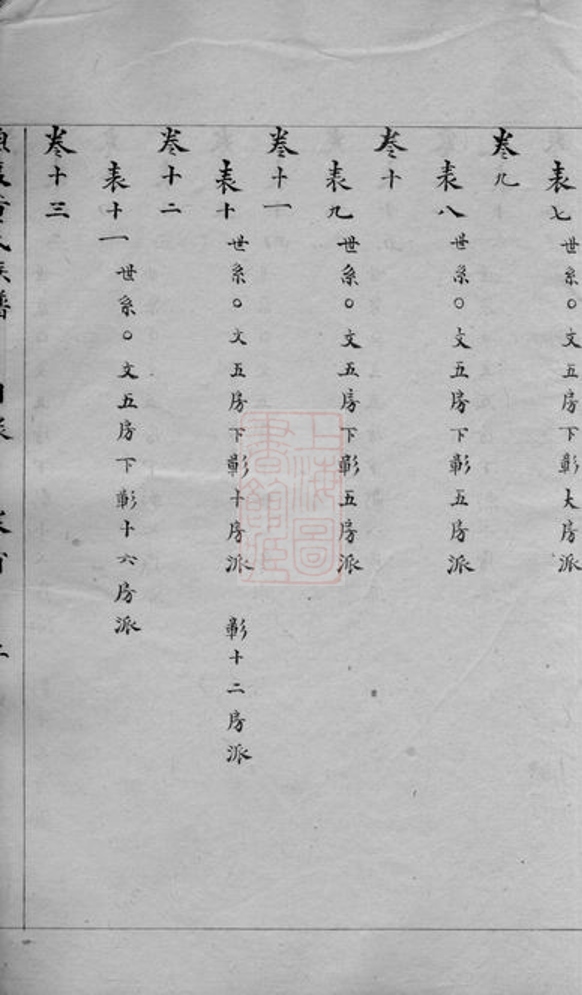 表七 世系○文五房下彰大房派
卷九
表八 世系○文五房下彰五房派
卷十
表九 世系○文五房下彰五房派
卷十一
表十 世系○文五房下彰十房派 彰十二房派
卷十二
表十一 世系○文五房下彰十六房派
卷十三
氏族譜 目錄
上海圖書館藏